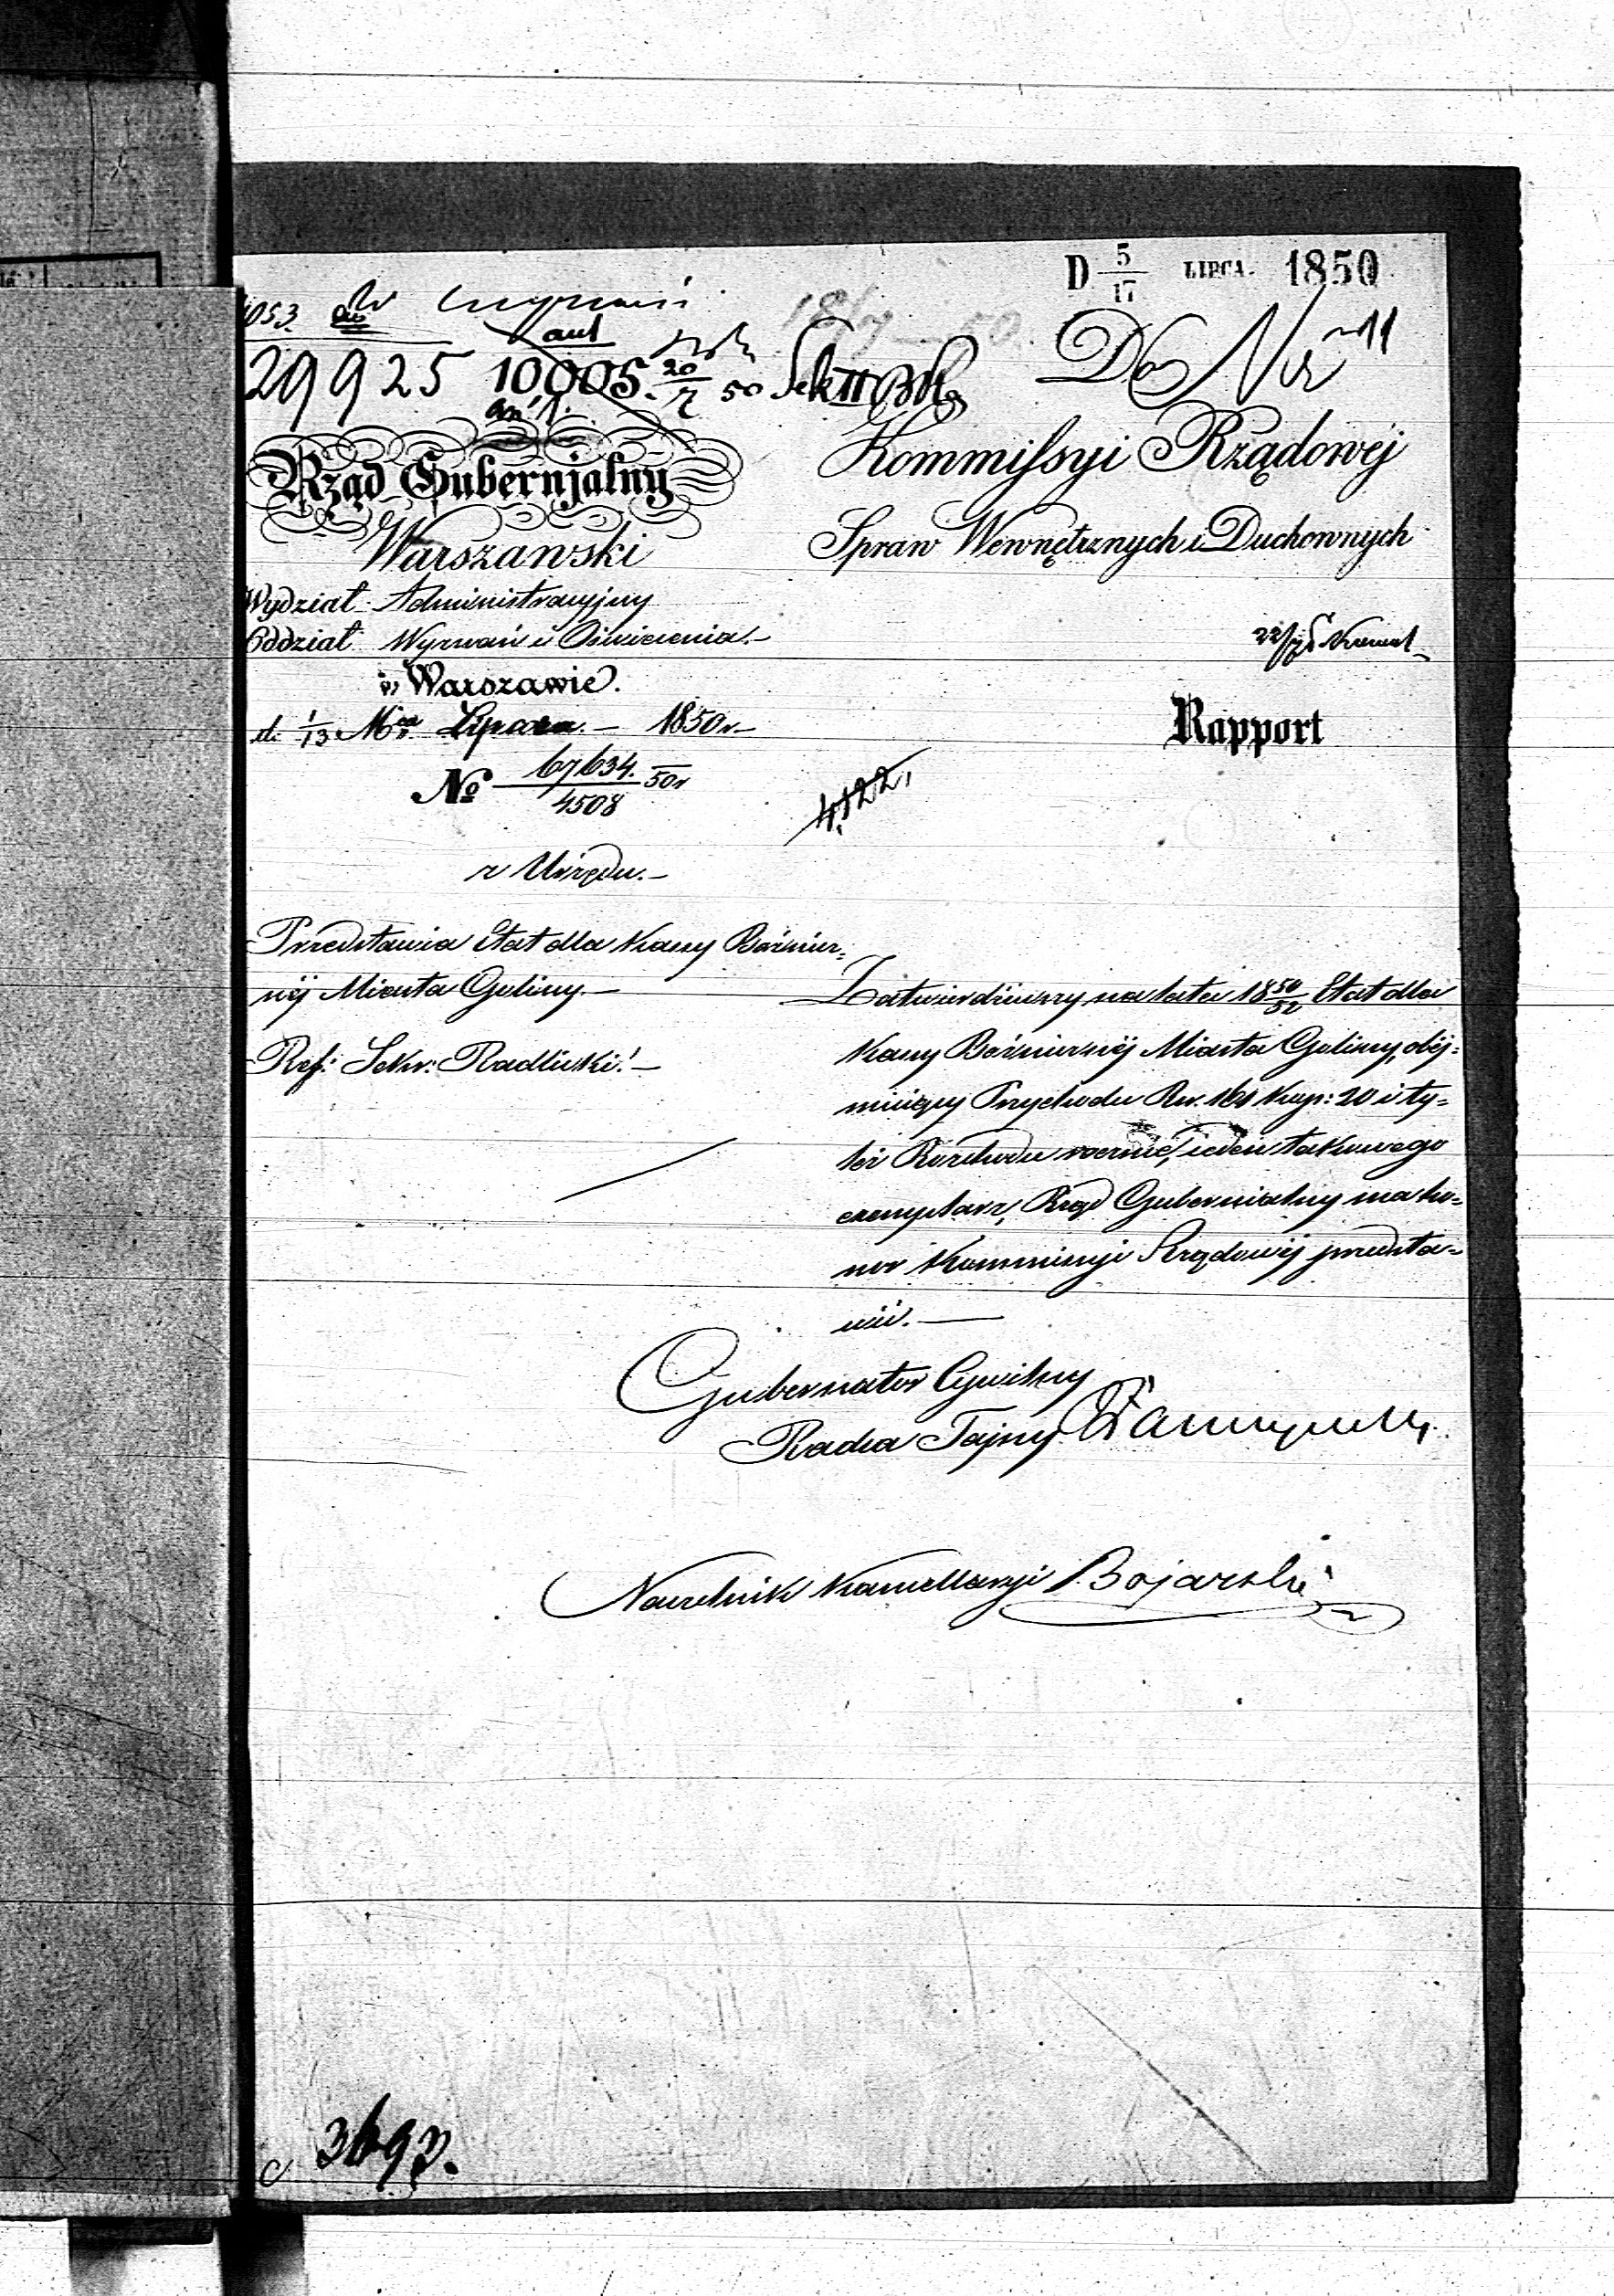 D 5/17 LIPCA. 1850
29925 10005. 20/7 50 Sek II
Do
Rząd Gubernjalny
Warszawski
Kommissyi Rządowéj
Spraw Wewnętrznych i Duchownych
Wydział Administracyjny
Oddział Wyznań i Oświecenia.
w Warszawie.
d. 1/13 Mca Lipca. 1850 r
Rapport
No 67634./4508 50r
4122,
z Urzędu.
Przedstawia Etat dla Kassy Bóżnicz=
néj Miasta Goliny.
Ref: Sekr: Radlicki.
Zatwierdziwszy na lata 18 50/52 Etat dla
Kassy Bóżniczéj Miasta Goliny, obéj=
muiący Przychodu Rs. 161 kop: 20 i ty=
leż Rozchodu rocznie, ieden takowego
exemplarz, Rząd Gubernialny ma ho=
nor Kommissyi Rządowéj przedsta=
wić.
Gubernator Cywilny
Radca Tajny
Naczelnik Kancellaryi Bojarski
3693.